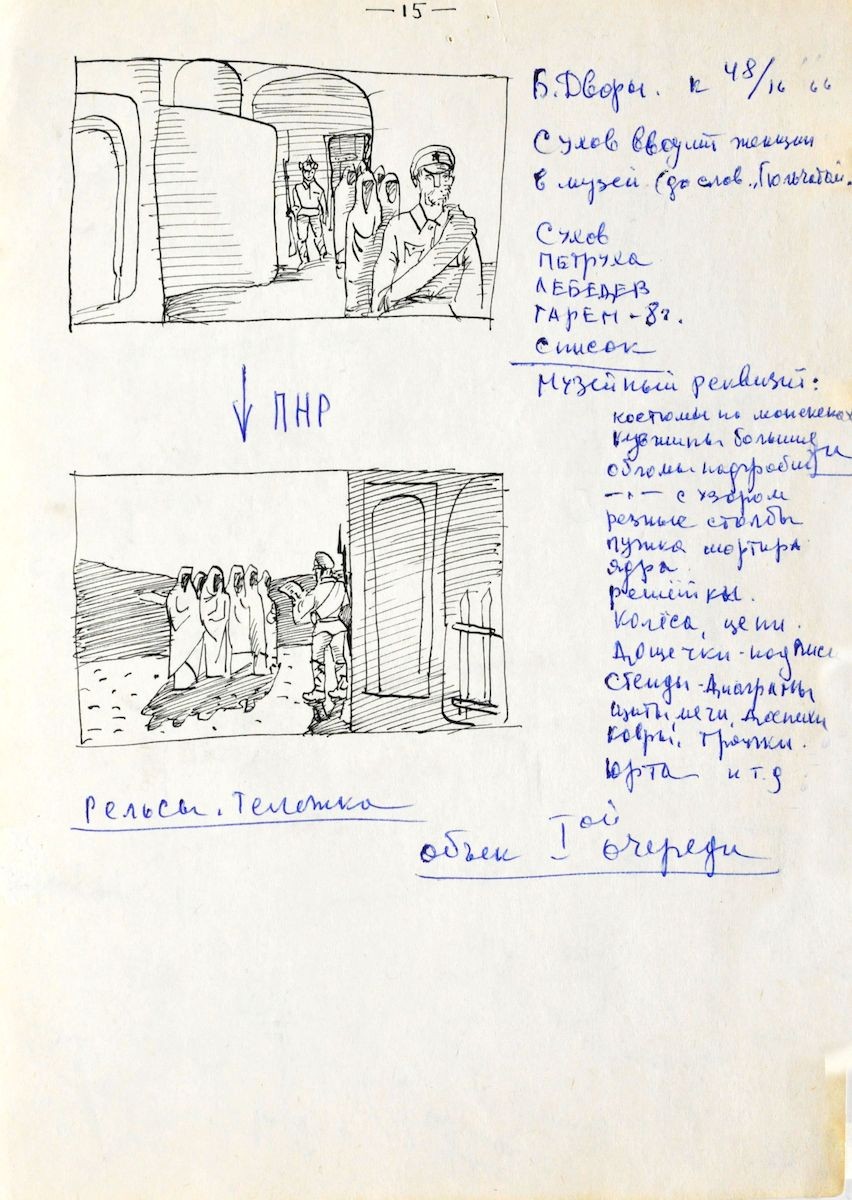 — 15 —
Б. Дворы. к 48/16
Сухов вводит женщин
в музей (до слов „Гюльчатай"
Сухов
ПЕТРУХА
ЛЕБЕДЕВ
ГАРЕМ - 8ч.
Список
ПНР
Музейный реквизит:
костюмы на монекенах
кувшины большие
обломы надгробий
—„— с узором
резные столбы
пушка мортира
ядра
решётки.
Колёса, цепи.
Дощечки-надписи
Стенды-Диаграммы
щиты мечи, доспехи
Ковры,
Юрта и т.д
Рельсы. Тележка
объек Iой очереди